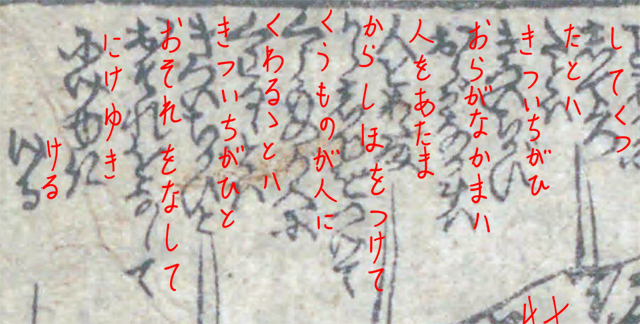 してくつ
たとハ
きついちがひ
おらがなかまハ
人をあたま
からしほをつけて
くうものが人に
くわるゝとハ
きついちがひと
おそれをなして
にけゆき
ける